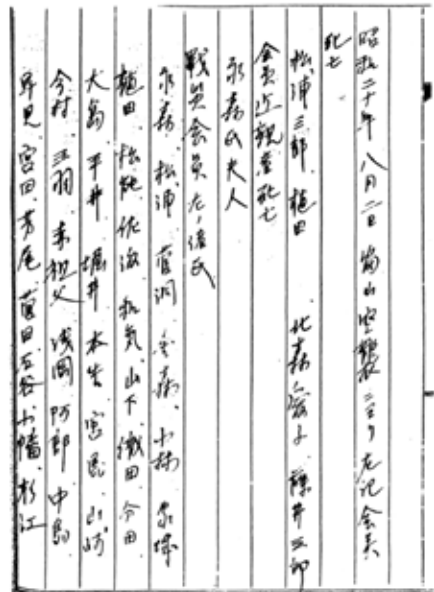 昭和二十年 八月二日 富山空襲ニヨリ左記会員
死亡
松浦三郎 植田 北森 藤井三郎
会員近親者死亡
永森氏夫人
戦災会員左ノ諸氏
永森 松浦 菅洞 金森 小林
植田 松能 佐海 和気 山下 織田 今田
大島 平井 堀井 本生 宮尾 山崎
今村 三羽 来祖父 浅岡 阿部 中島
宮田 茅尾 萱田 石谷 小幡 杉江